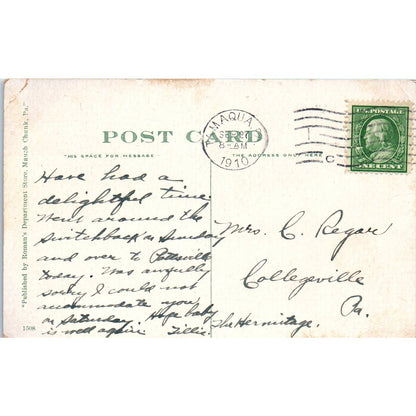 POST CARD
THIS SPACE FOR MESSAGE
THE ADDRESS ONLY HERE
TAMAQUA
8-AM
1910
U.S. POSTAGE
"Published by Roman's Department Store, Mauch Chunk, Pa."
1508
Have had a
delightful time
Went around the
Switchback on Sunday
and over to Pottsville
today. Was awfully
sorry I could not
accommodate you
on Saturday. Hope baby
is well again. Tillie.
Mrs. C. Regar
Collegeville
Pa.
The Hermitage.